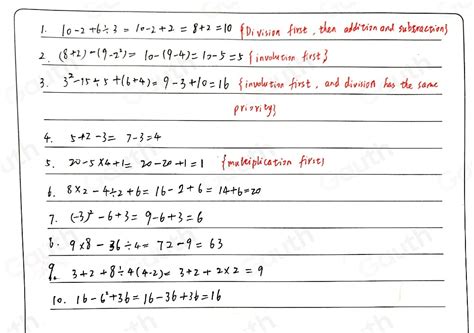 1. 10-2+6÷3 = 10-2+2 = 8+2=10 {Division first, then addition and subtraction}
2. (8+2)-(9-2²)= 10-(9-4)= 10-5=5 {involution first}
3. 3²-15÷5+(6+4)= 9-3+10=16 {involution first, and division has the same
priority}
4. 5+2-3= 7-3=4
5. 20-5×4+1= 20-20+1=1 {multiplication first}
6. 8×2-4÷2+6= 16-2+6=14+6=20
7. (-3)²-6+3= 9-6+3=6
8. 9×8-36÷4= 72-9=63
9. 3+2+8÷4(4-2)= 3+2+2×2=9
10. 16-6²+36=16-36+36=16